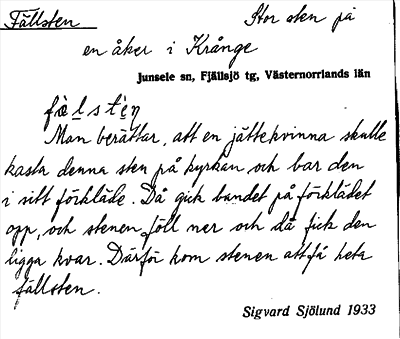 Fällsten Stor sten på
en åker i Krånge
Junsele sn, Fjällsjö tg, Västernorrlands län
fælstèn
Man berättar, att en jättekvinna skulle
kasta denna sten på kyrkan och bar den
i sitt förkläde. Då gick bandet på förklädet
opp, och stenen föll ner och då fick den
ligga kvar. Därför kom stenen att få heta
fällsten.
Sigvard Sjölund 1933